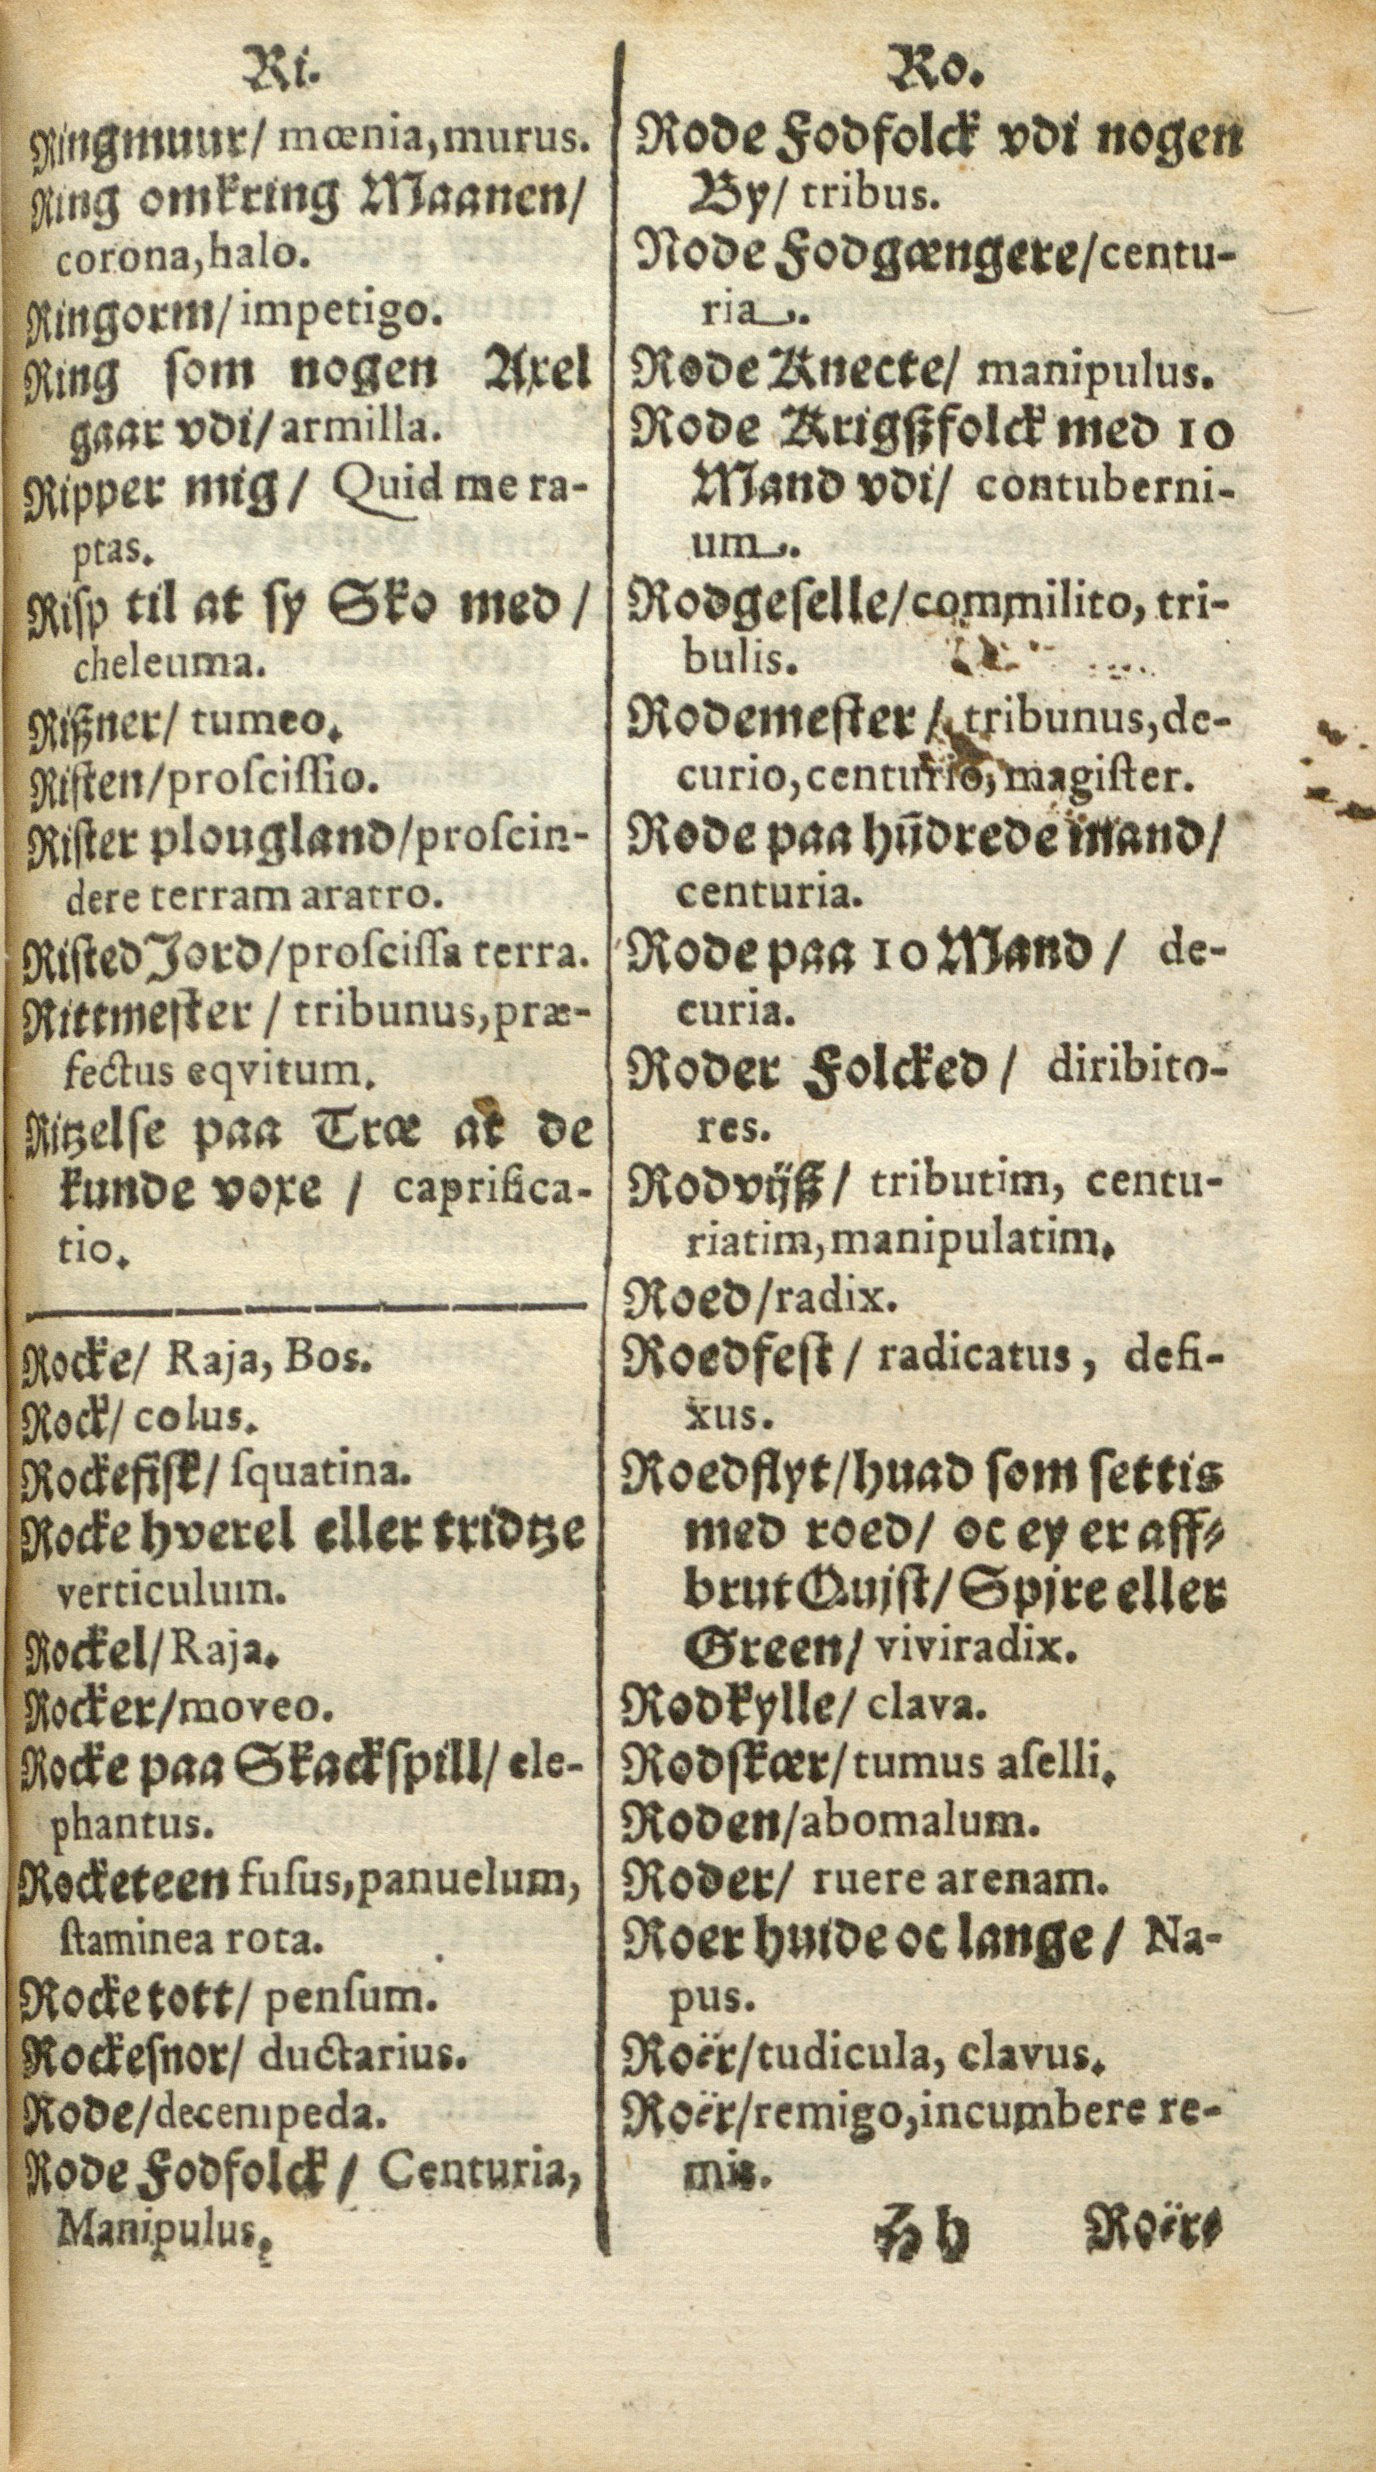 Ri.
Ringmuur/ mœnia, murus.
Ring omkring Maanen/
corona, halo.
Ringorm/ impetigo.
Ring som nogen Axel
gaar vdi/ armilla.
Ripper mig/ Quid me ra-
ptas.
Riſp til at ſy Sko med/
cheleuma.
Rißner/ tumeo.
Riſten/ proſciſſio.
Riſter plougland/ proſcin-
dere terram aratro.
Riſted Jord/ proſciſſa terra.
Rittmeſter/ tribunus, præ-
fectus eqvitum.
Ritzelſe paa Træ at de
kunde voxe/ caprifica-
tio.
Rocke/ Raja, Bos.
Rock/ colus.
Rockefiſk/ ſquatina.
Rocke hverel eller tridtze
verticulum.
Rockel/ Raja.
Rocker/ moveo.
Rocke paa Skackſpill/ ele-
phantus.
Rocketeen fuſus, panuelum,
ſtaminea rota.
Rocketott/ penſum.
Rockeſnor/ ductarius.
Rode/ decempeda.
Rode Fodfolck/ Centuria,
Manipulus.
Ro.
Rode Fodfolck vdi nogen
By/ tribus.
Rode Fodgængere/ centu-
ria.
Rode Knecte/ manipulus.
Rode Krigßfolck med 10
Mand vdi/ contuberni-
um.
Rodgeſelle/ commilito, tri-
bulis.
Rodemeſter/ tribunus, de-
curio, centurio, magiſter.
Rode paa hūdrede mand/
centuria.
Rode paa 10 Mand/ de-
curia.
Roder Folcked/ diribito-
res.
Rodvijß/ tributim, centu-
riatim, manipulatim.
Roed/ radix.
Roedfeſt/ radicatus, defi-
xus.
Roedflyt/ huad ſom ſettis
med roed/ oc ey er aff-
brut Quiſt/ Spire eller
Green/ viviradix.
Rodkylle/ clava.
Rodſkær/ tumus aſelli.
Roden/ abomalum.
Roder/ ruere arenam.
Roer huide oc lange/ Na-
pus.
Roër/ tudicula, clavus.
Roër/ remigo, incumbere re-
mis.
Hh Roëre